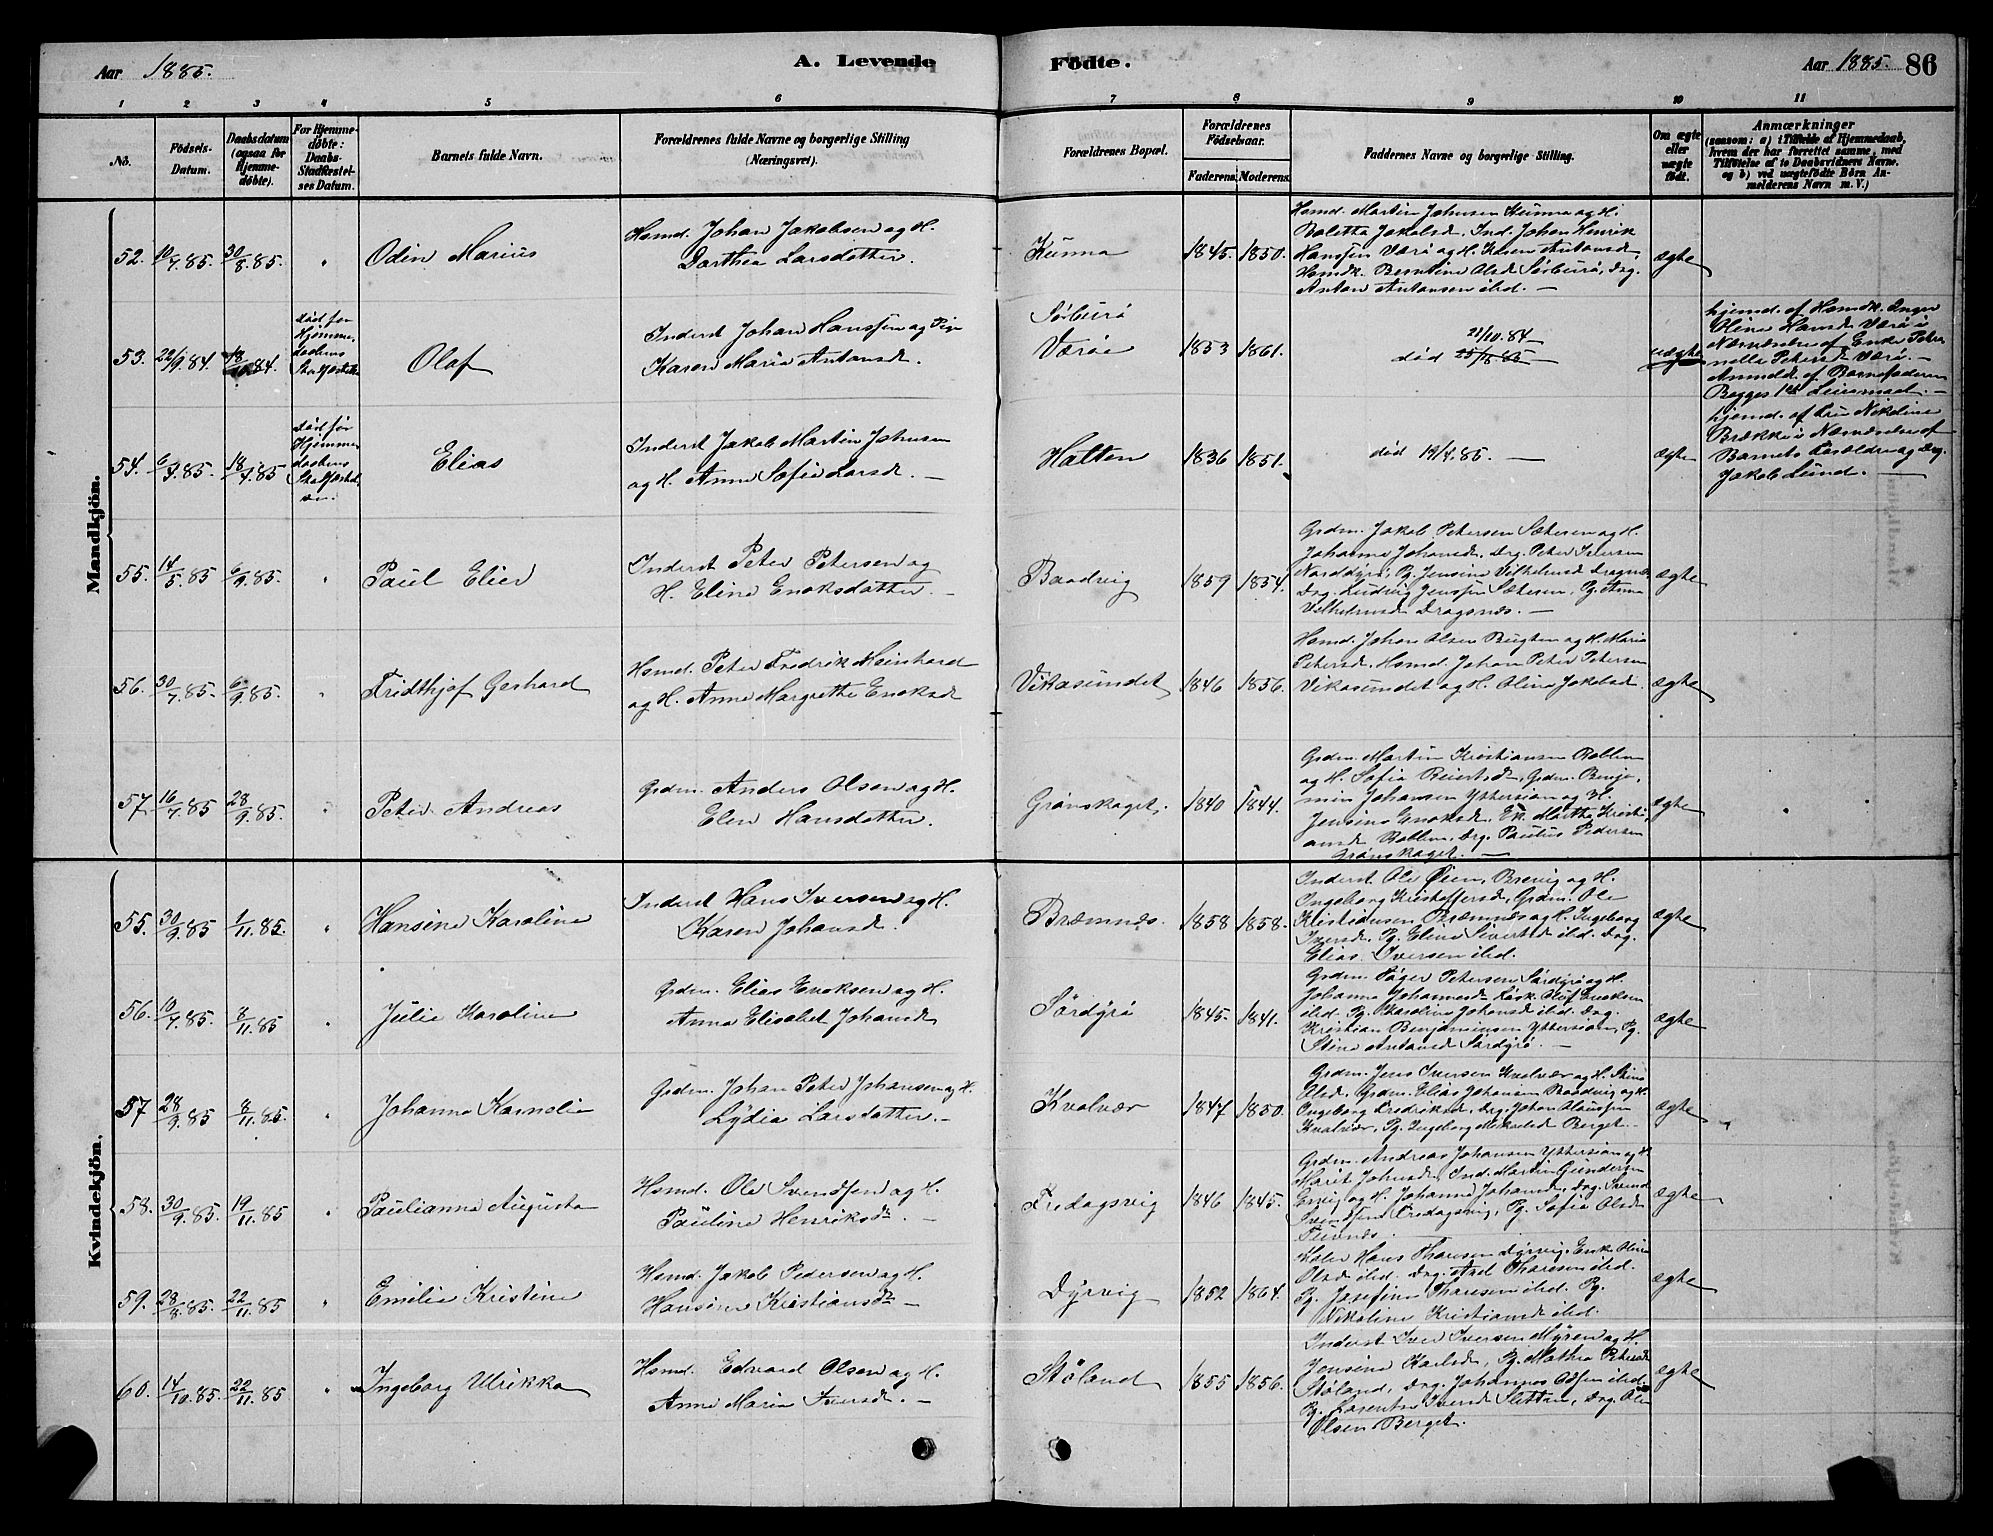 Aar 1885. A. Levende Födte. Aar 1885. 86
1 2 3 4 5 6 7 8 9 10 11
No.
Födsels-Datum.
Daabsdatum (ogsaa for Hjemme-döbte).
For Hjemme-döbte: Daabs-Stadfæstel-ses Datum.
Barnets fulde Navn.
Forældrenes fulde Navne og borgerlige Stilling (Næringsvei).
Forældrenes Bopæl.
Forældrenes Födselsaar.
Faderens. Moderens.
Faddernes Navne og borgerlige Stilling.
Om ægte eller uægte födt.
Anmærkninger
(saasom: a) i Tilfælde af Hjemmedaab,
hvem der har forrettet samme, med
Tilföielse af to Daabsvidners Navne.
og b) ved uægtefödte Börn An-
melderens Navn m. V.)
Mandkjön.
52. 10/7.85. 30/8.85. " Odin Marius
Hsmd. Johan Jakobsen og H.
Dorthea Larsdotter.
Kunna 1845. 1850.
Hsmd. Martin Johnsen Kunna og H.
Boletta Jakobsd. Ind. Johan Henrik
Hanssen Værö og H. Karen Antonsd.
Hsmdk. Berntine Olsd. Sörburö, Drg.
Anton Antonsen ibd. —
ægte
53. 22/9.84. 18/10.84.
död før
Hjemme-
daabens
Stadfæstelse
Olaf
Inderst Johan Hanssen og Pige
Karen Maria Antonsd.
Sörburö
Væröi 1853 1861.
21/10.84
död 25/8.85
uægte
hjemd. af Hsmdk. Inger
Olina Hansd. Værö i
Nærværelse af Enke Peter-
nella Petersd. Værö. —
Anmeldt af Barnefaderen
Begges 1ste Leiermaal. —
54. 6/4.85. 18/4.85
död før
Hjemme-
daabens
Stadfæstel-
sen.
Elias
Inderst Jakob Martin Johnsen
og H. Anna Sofia Larsd. —
Halten 1836 1851.
död 19/4.85. —
ægte
hjemd. af Fru Nikoline
Brække i Nærværelse af
Barnets Forældre og Drg.
Jakob Lund. —
55. 14/5.85 6/9.85. " Paul Elier
Inderst Peter Petersen og
H. Elina Enoksdatter. —
Baadvig 1859 1854.
Grdm. Jakob Petersen Sætesen og H.
Johanna Johansd. Drg. Peter Iversen
Norddyrö, Pg. Jensine Vilhelmsd. Dragsnes
Drg. Ludvig Jenssen Sætesen, Pg. Anna
Vilhelmsd. Dragsnes. —
ægte
56. 30/7.85. 6/9.85. " Fridthjof Gerhard
Hsmd. Peter Fredrik Meinhard
og H. Anna Margrethe Enoksd
Vikasundet 1846 1856.
Hsmd. Johan Olsen Bugten og H. Maria
Petersd. Hsmd. Johan Peter Petersen
Vikasundet og H. Olina Jakobsd.
ægte
57. 16/7.85 28/9.85. " Peter Andreas
Grdm. Anders Olsen og H.
Elen Hansdatter.
Grönskaget. 1840 1844.
Grdm. Martin Kristiansen Roblem
og H. Sofia Reiertsd., Grdm. Benja-
min Johansen Yttersian og H.
Jensine Enoksd. Ek. Martha Kristi-
ansd. Roblem, Drg. Paulus Pedersen
Grönskaget. —
ægte
Kvindekjön.
55. 30/9.85 1/11.85. " Hansine Karolina
Inderst Hans Iversen og H.
Karen Johansd.
Bræmnæs. 1858 1858.
Inderst Ole Öien, Brevig og H.
Ingeborg Kristoffersd., Grdm. Ole
Kristiansen Bræmnæs og H. Ingeborg
Iversd., Pg. Elina Sivertsd. ibd. Drg.
Elias Iversen ibd.
ægte
56. 10/7.85. 8/11.85 " Julie Karoline
Grdm. Elias Enoksen og H.
Anna Elisabet Johansd
Sördyrö 1845. 1841.
Grdm. Röger Petersen Sördyrö og H.
Johanna Johannesd. Oluf Enoksen
ibd. Pg. Karoline Johansd. ibd. Drg.
Kristian Benjaminsen Yttersian, Pg.
Stina Antonsd Sördyrö. —
ægte
57 28/9.85 8/11.85. " Johanna Karnelia
Grdm. Johan Peter Johansen og H.
Lydia Larsdatter. —
Kvalvær 1847 1850.
Grdm. Jens Iversen Kvalvær og H. Stina
Olsd., Grdm. Elias Johansen Baadvig og H.
Ingeborg Fredriksd., Drg. Johan Olaussen
Kvalvær, Pg. Ingeborg Mikaelsd Berget. —
ægte
58. 30/9.85. 19/11.85 " Paulianna Augusta
Hsmd. Ole Svendsen og H.
Pauline Henriksdr. —
Fredagsvig 1846 1845.
Grdm. Andreas Johansen Yttersian og H
Marit Johnsd., Ind. Martin Gundersen
Ervig og H. Johanna Johansd., Drg. Svend
Svendsen Fredagsvig, Pg. Sofia Olsdr
ægte
59. 28/8.85. 22/11.85 " Emilie Kristine
Hsmd. Jakob Pedersen og H.
Hansine Kristiansdr —
Dyrvig 1852 1864.
Hans Thoresen Dyrvig, Enk. Olina
Olsd ibd. Drg. Axel Thoresen ibd.
Pg. Josefine Thoresen ibd. Pg.
Nikoline Kristiansd ibd.
ægte
60. 14/10.85. 22/11.85 " Ingeborg Ulrikka
Hsmd. Edvard Olsen og H.
Anne Marie Iversd. —
Stöland 1855 1856.
Inderst Iver Iversen Myren og H.
Jensine Karlsd., Pg. Mathea Petersd
Stöland, Drg. Johannes Olsen ibd.
Pg. Lorentse Iversd Sletten, Drg. Ole
Olsen Berget.
ægte